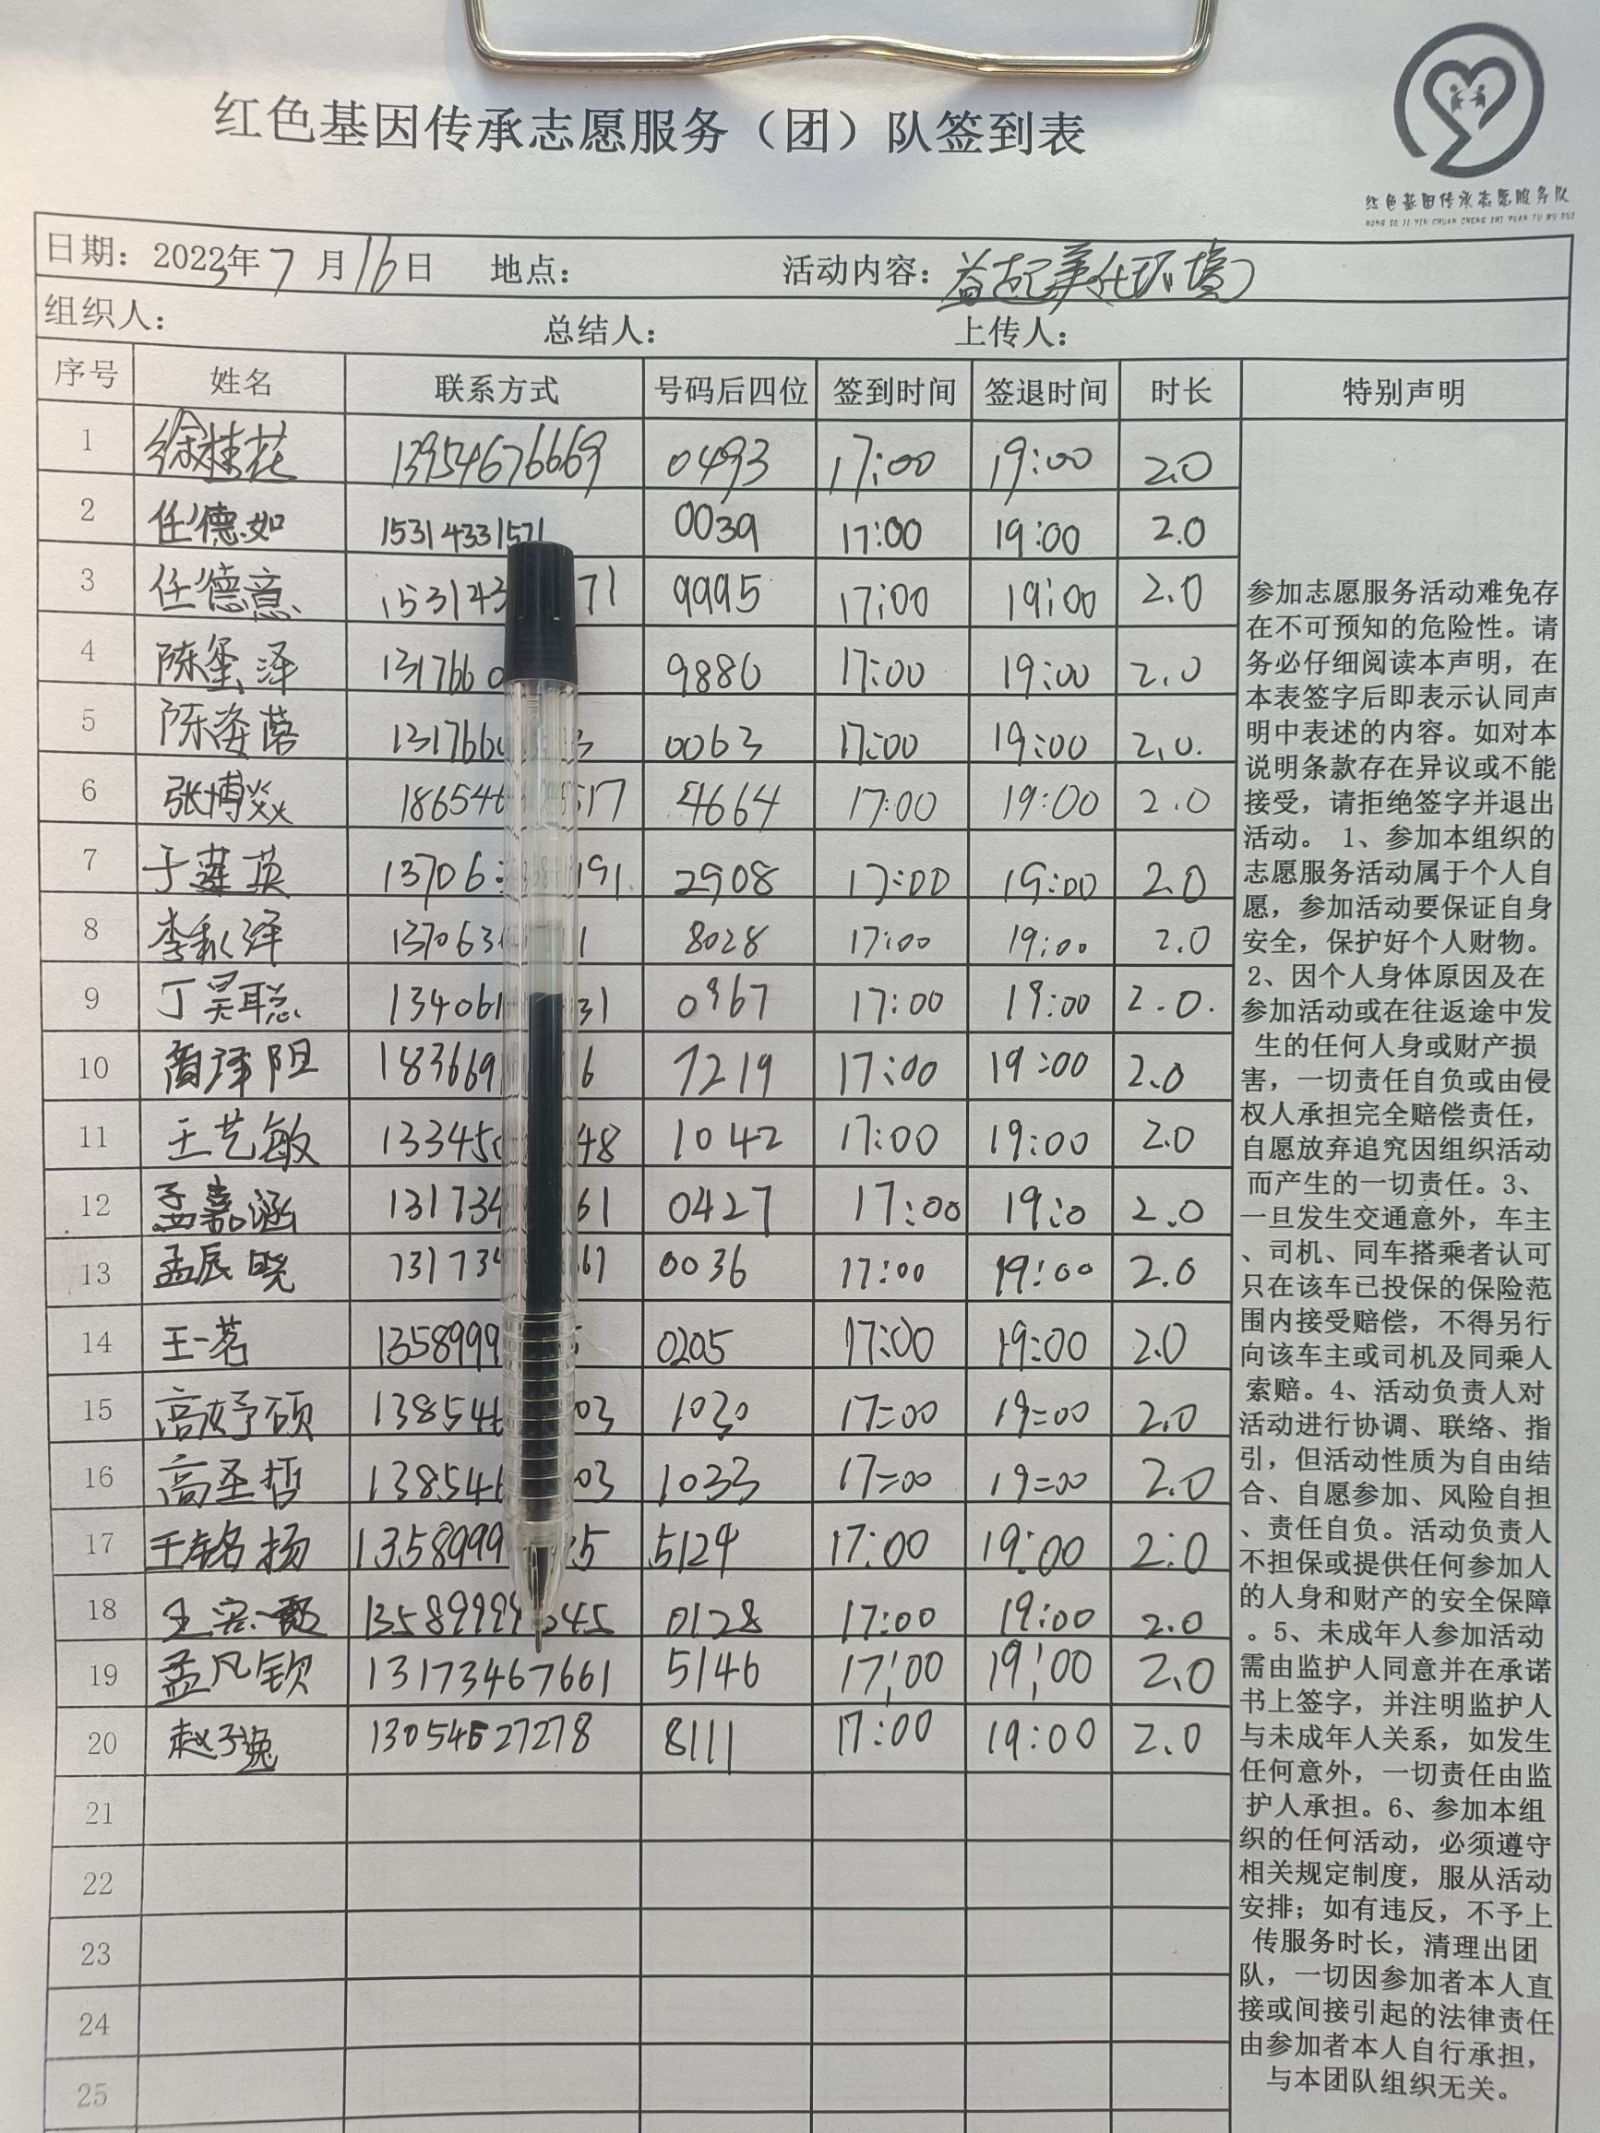 红色基因传承志愿服务（团）队签到表
红色基因传承志愿服务队
HONG SE JI YIN CHUAN CHENG ZHI YUAN FU WU DUI
日期：2023年7月16日 地点： 活动内容：益起美化环境
组织人： 总结人： 上传人：
序号 姓名 联系方式 号码后四位 签到时间 签退时间 时长 特别声明
1 徐桂花 13954676669 0493 17:00 19:00 2.0
2 任德如 15314331571 0039 17:00 19:00 2.0
3 任德意 1531433 71 9995 17:00 19:00 2.0
4 陈 泽 1317660 9886 17:00 19:00 2.0
5 陈姿蓉 131766 3 0063 17:00 19:00 2.0.
6 张博焱 186546 517 4664 17:00 19:00 2.0
7 于莲英 13706 191 2908 17:00 19:00 2.0
8 李 泽 137063 1 8028 17:00 19:00 2.0
9 丁昊聪 134061 31 0967 17:00 19:00 2.0.
10 泽阳 183669 6 7219 17:00 19:00 2.0
11 王艺敏 133450 48 1042 17:00 19:00 2.0
12 孟嘉涵 131734 61 0427 17:00 19:0 2.0
13 孟辰晓 131734 61 0036 17:00 19:00 2.0
14 王一茗 1358999 0205 17:00 19:00 2.0
15 高妤硕 138546 03 1030 17=00 19=00 2.0
16 高圣哲 138546 03 1033 17=00 19=00 2.0
17 王铭扬 1358999 5 5124 17:00 19:00 2:0
18 王 1358999 545 0128 17:00 19:00 2.0
19 孟凡钦 13173467661 5146 17:00 19:00 2.0
20 赵子逸 13054627278 8111 17:00 19:00 2.0
21
22
23
24
25
参加志愿服务活动难免存
在不可预知的危险性。请
务必仔细阅读本声明，在
本表签字后即表示认同声
明中表述的内容。如对本
说明条款存在异议或不能
接受，请拒绝签字并退出
活动。 1、参加本组织的
志愿服务活动属于个人自
愿，参加活动要保证自身
安全，保护好个人财物。
2、因个人身体原因及在
参加活动或在往返途中发
生的任何人身或财产损
害，一切责任自负或由侵
权人承担完全赔偿责任，
自愿放弃追究因组织活动
而产生的一切责任。3、
一旦发生交通意外，车主
、司机、同车搭乘者认可
只在该车已投保的保险范
围内接受赔偿，不得另行
向该车主或司机及同乘人
索赔。4、活动负责人对
活动进行协调、联络、指
引，但活动性质为自由结
合、自愿参加、风险自担
、责任自负。活动负责人
不担保或提供任何参加人
的人身和财产的安全保障
。5、未成年人参加活动
需由监护人同意并在承诺
书上签字，并注明监护人
与未成年人关系，如发生
任何意外，一切责任由监
护人承担。6、参加本组
织的任何活动，必须遵守
相关规定制度，服从活动
安排；如有违反，不予上
传服务时长，清理出团
队，一切因参加者本人直
接或间接引起的法律责任
由参加者本人自行承担，
与本团队组织无关。